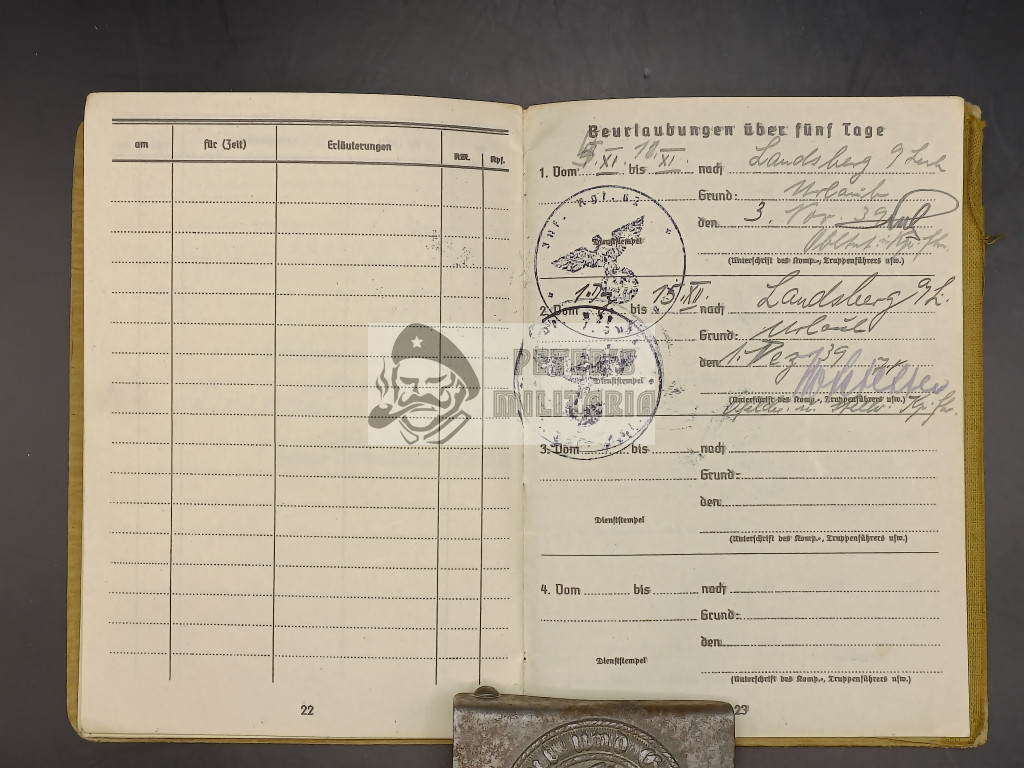 am für (Zeit) Erläuterungen RM. Rpf.
22
Beurlaubungen über fünf Tage
1. Vom 5. XI. bis 18. XI. nach Landsberg a/Lech
Grund: Urlaub
den 3. Nov. 39
Dienststempel
(Unterschrift des Komp.-, Truppenführers usw.)
Inf. Rgt. 62
2. Vom bis 15. XII. nach Landsberg a/L.
Grund: Urlaub
den 1. Dez. 39
Dienststempel
(Unterschrift des Komp.-, Truppenführers usw.)
PETER'S
MILITARIA
3. Vom bis nach
Grund:
den
Dienststempel
(Unterschrift des Komp.-, Truppenführers usw.)
4. Vom bis nach
Grund:
den
Dienststempel
(Unterschrift des Komp.-, Truppenführers usw.)
23